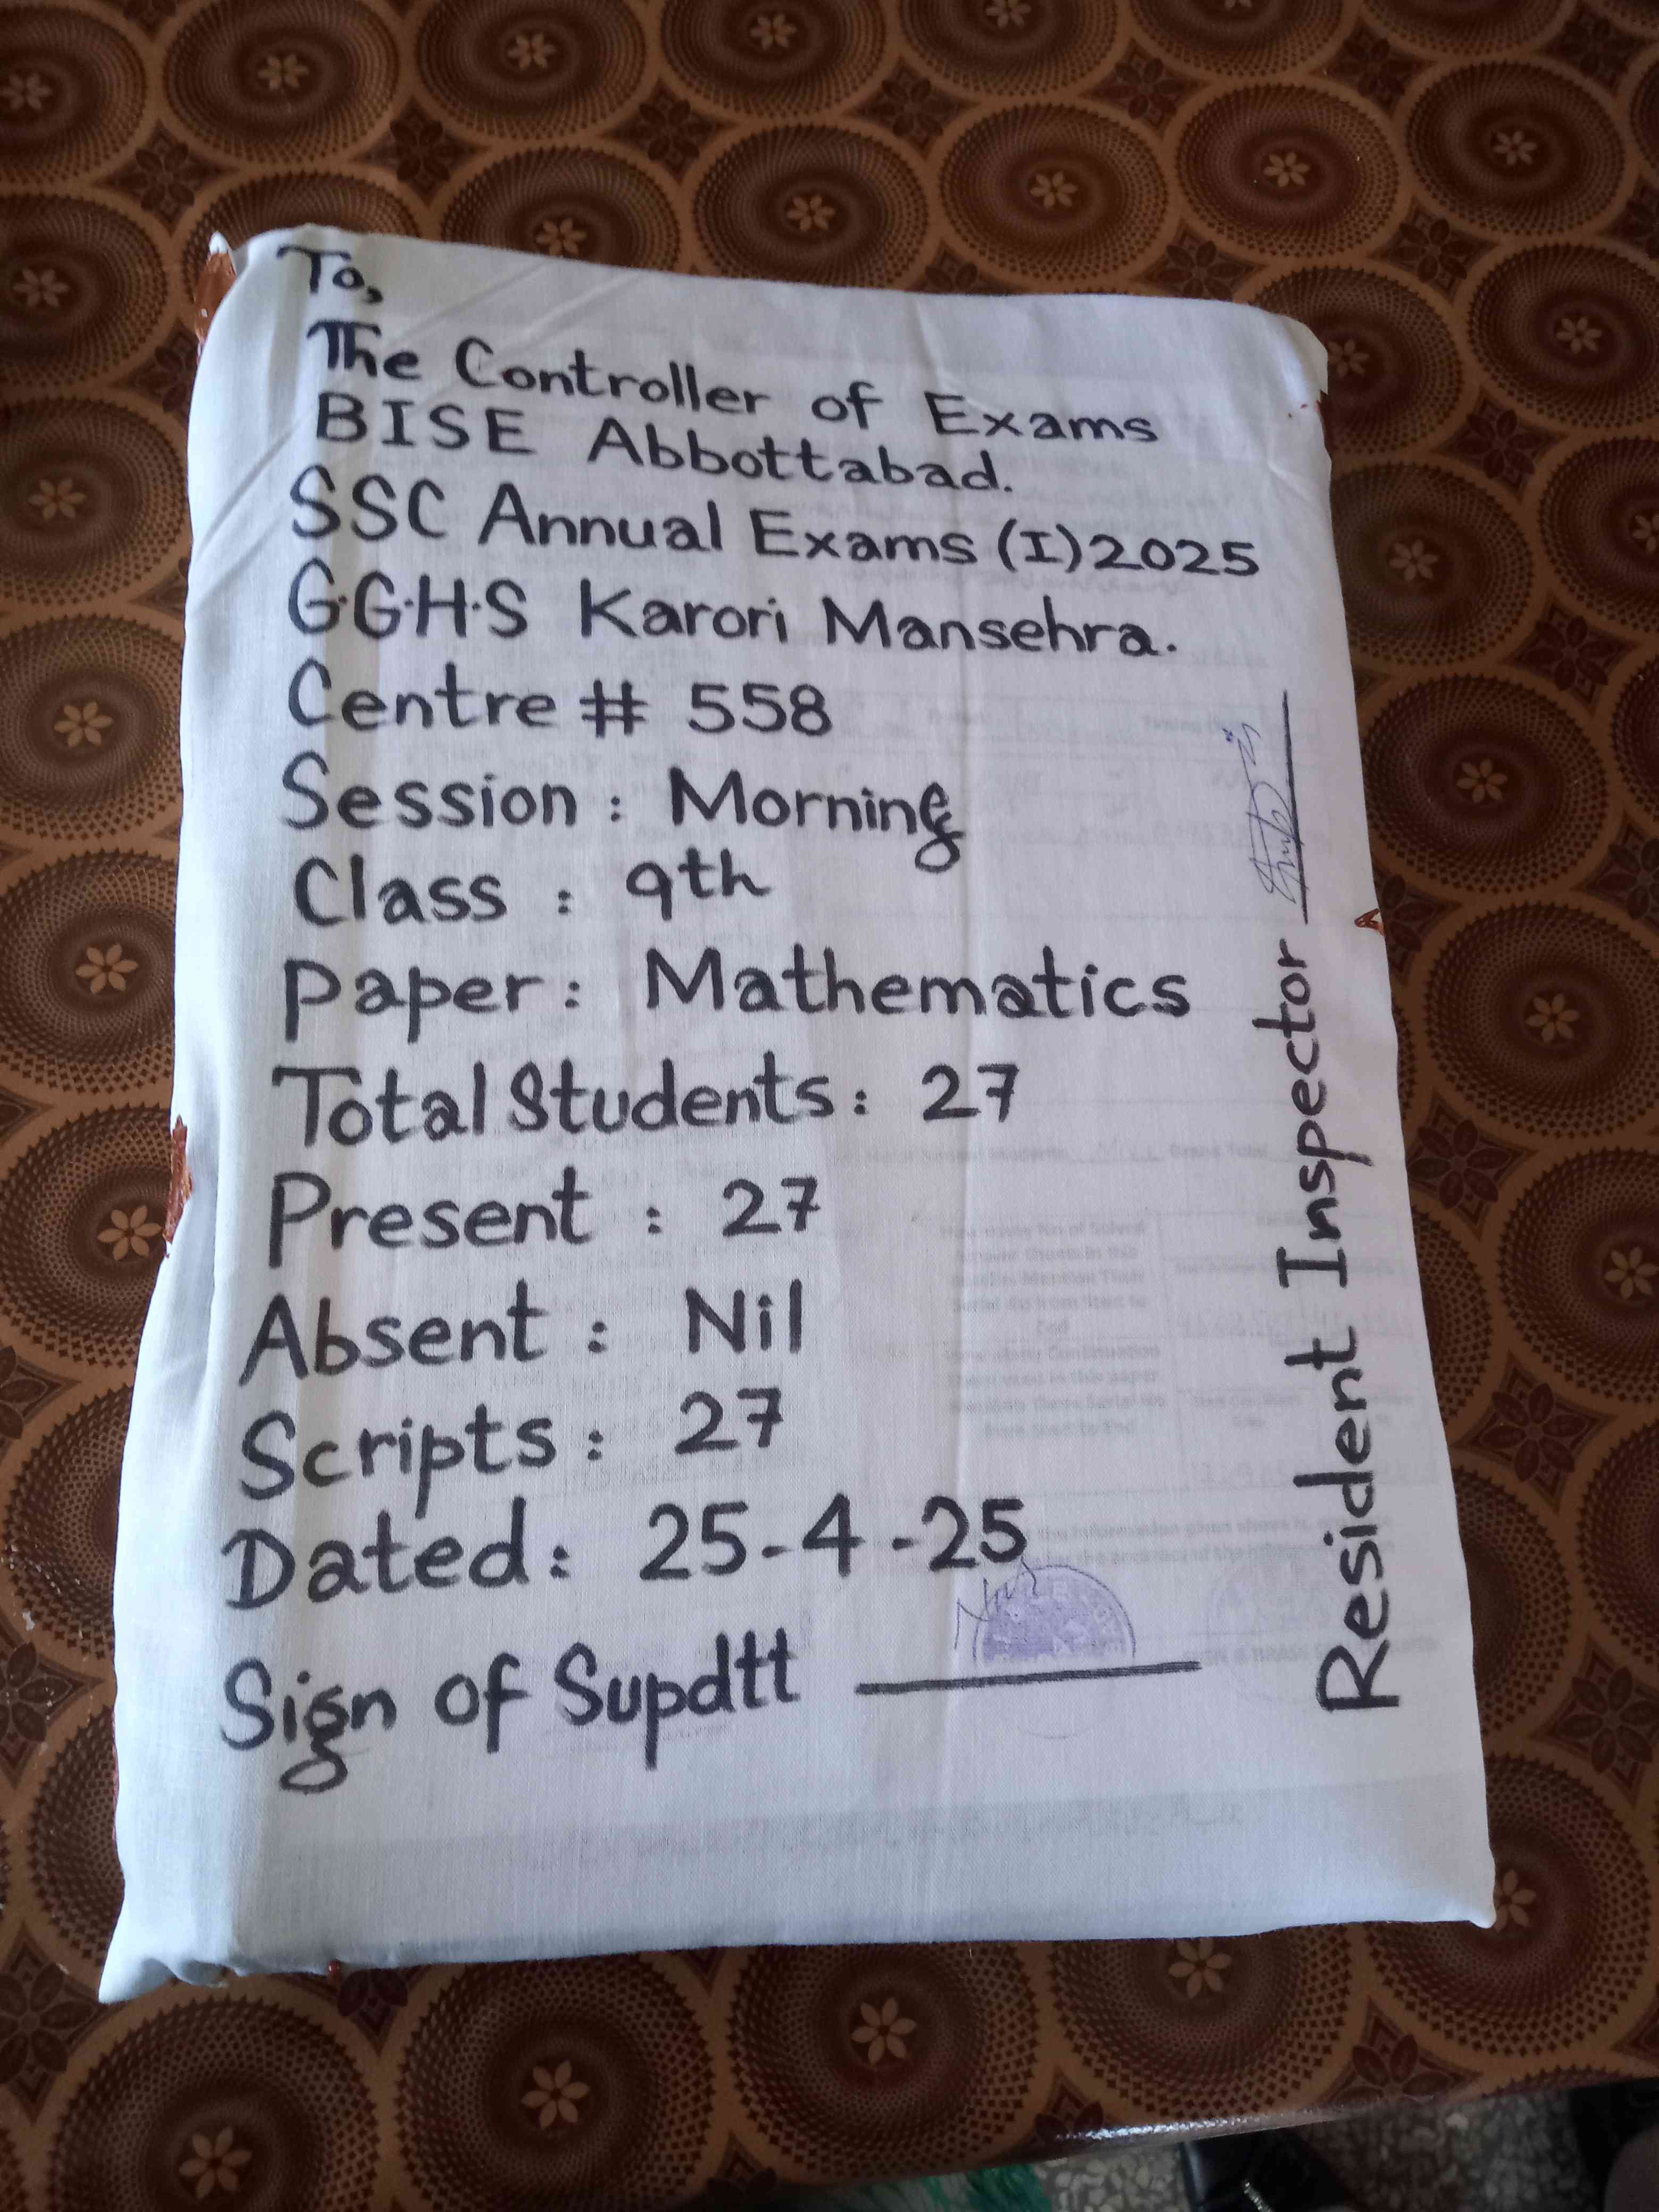 To,
The Controller of Exams
BISE Abbottabad.
SSC Annual Exams (I) 2025
G.G.H.S Karori Mansehra.
Centre # 558
Session : Morning
Class : 9th
Paper : Mathematics
Total Students : 27
Present : 27
Absent : Nil
Scripts : 27
Dated : 25-4-25
Sign of Supdtt
Resident Inspector